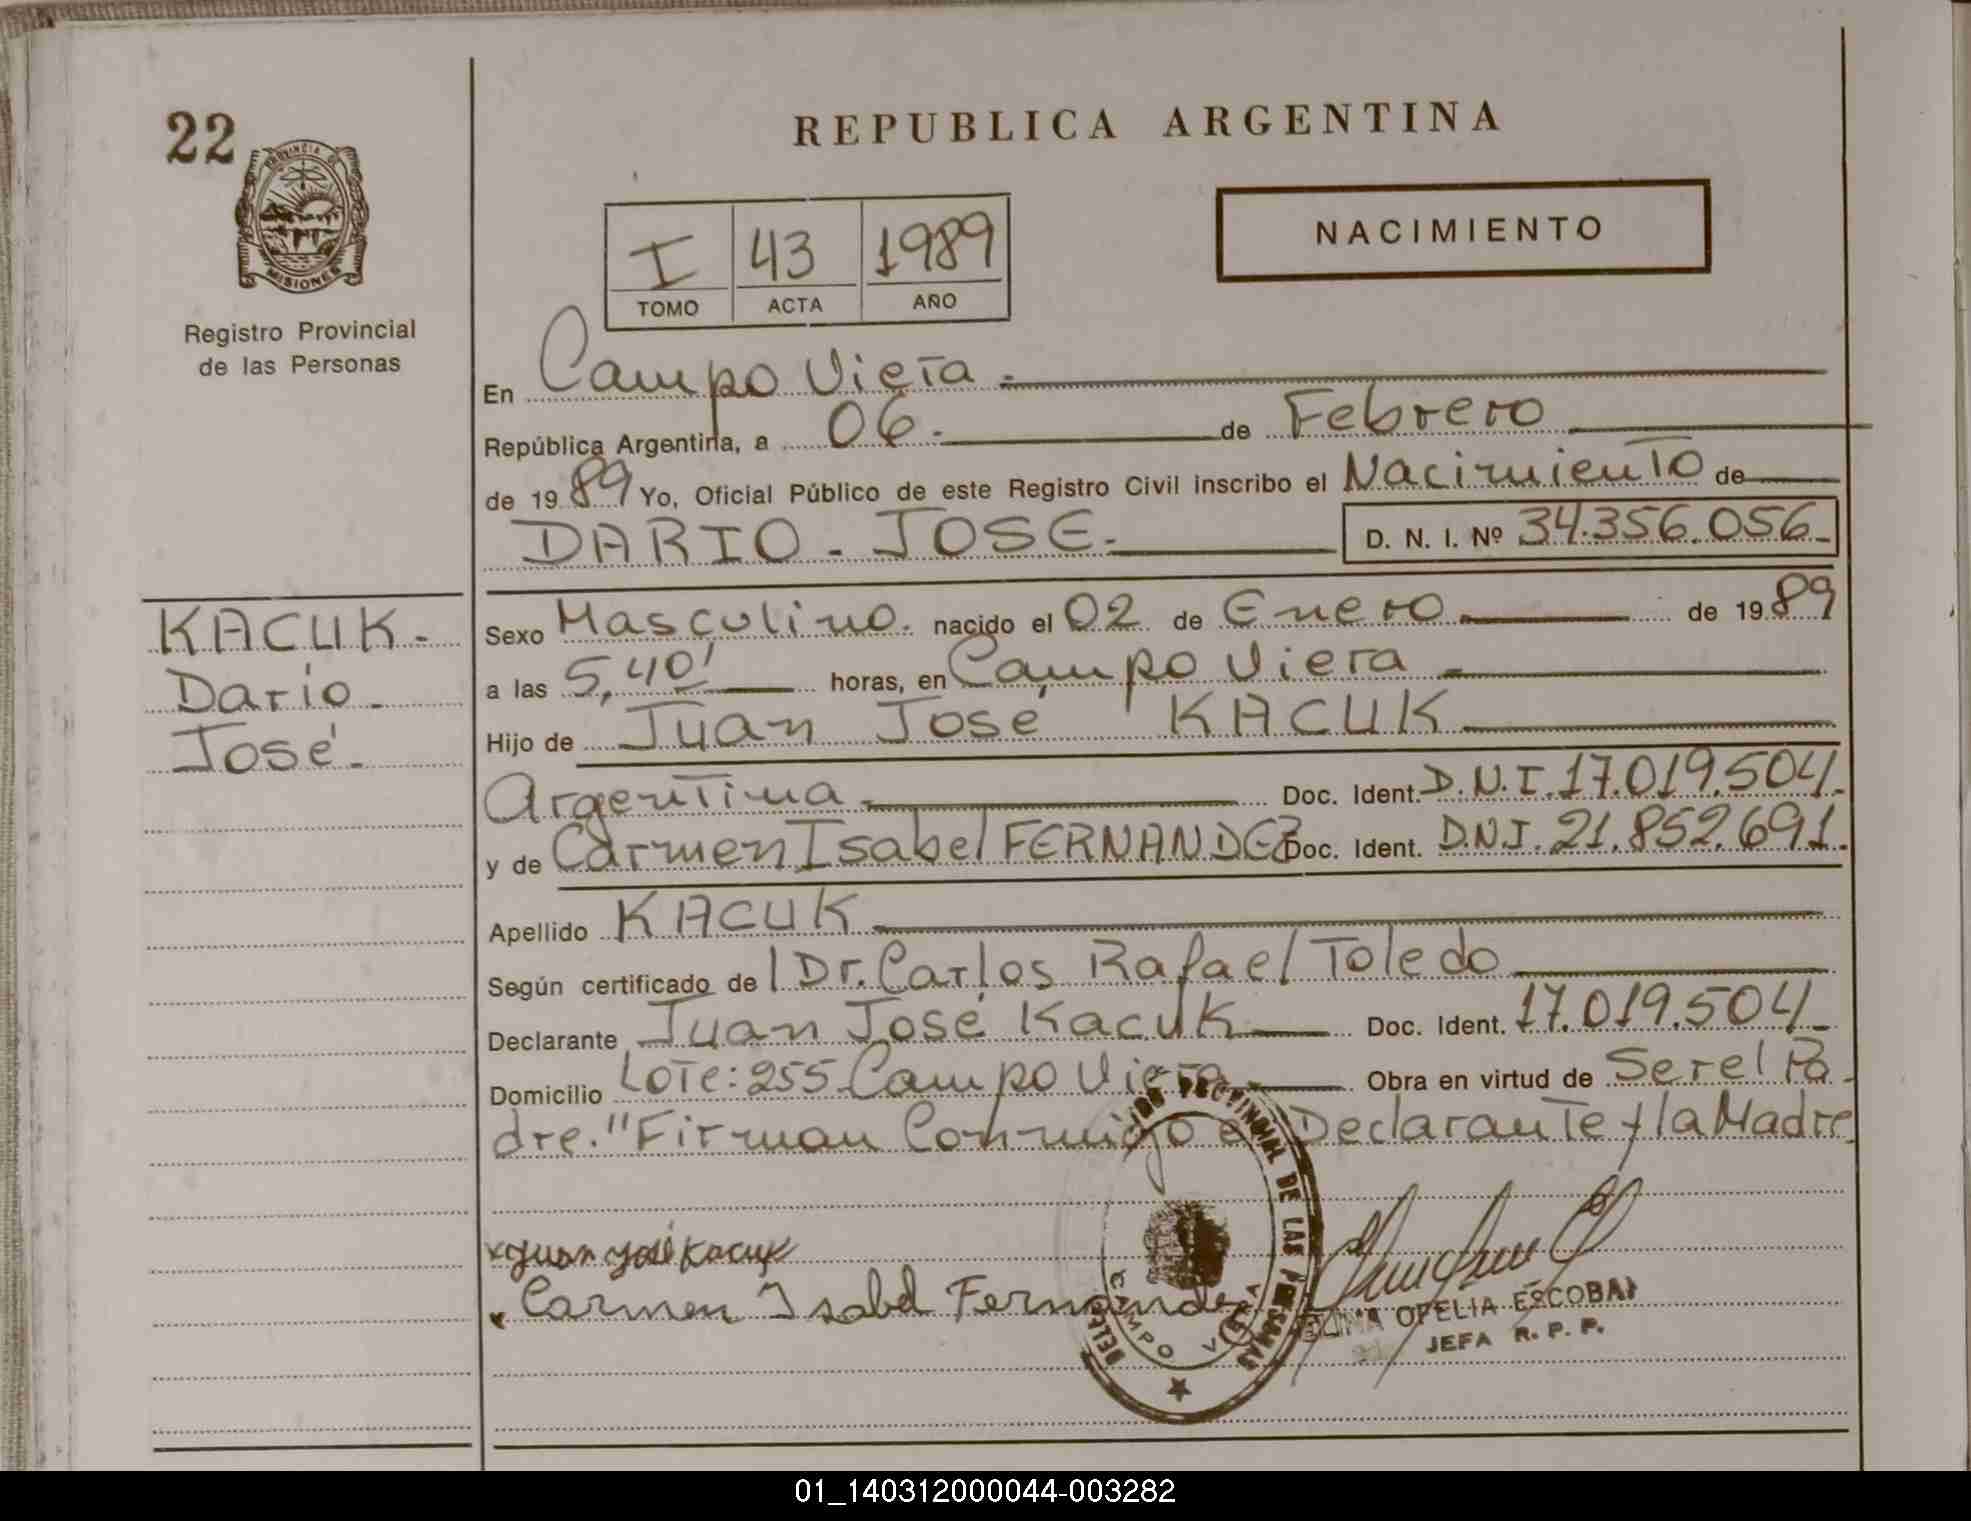 22
PROVINCIA DE
MISIONES
Registro Provincial
de las Personas
REPUBLICA ARGENTINA
I 43 1989
TOMO ACTA AÑO
NACIMIENTO
En Campo Viera.
República Argentina, a 06. de Febrero
de 1989 Yo, Oficial Público de este Registro Civil inscribo el Nacimiento de
DARIO - JOSE. D. N. I. Nº 34.356.056
KACUK.
Dario.
José.
Sexo Masculino. nacido el 02 de Enero de 1989
a las 5,40' horas, en Campo Viera
Hijo de Juan José KACUK
Argentina Doc. Ident. D.N.I. 17.019.504.
y de Carmen Isabel FERNANDEZ Doc. Ident. D.N.I. 21.852.691.
Apellido KACUK
Según certificado de l Dr. Carlos Rafael Toledo
Declarante Juan José Kacuk Doc. Ident. 17.019.504
Domicilio Lote: 255 Campo Viera Obra en virtud de Ser el Pa
dre." Firman Conmigo el Declarante y la Madre
x Juan José Kacuk
Carmen Isabel Fernandez
PROVINCIAL DE LAS PERSONAS
CAMPO VIERA
OFELIA ESCOBAR
JEFA R. P. P.
01_140312000044-003282